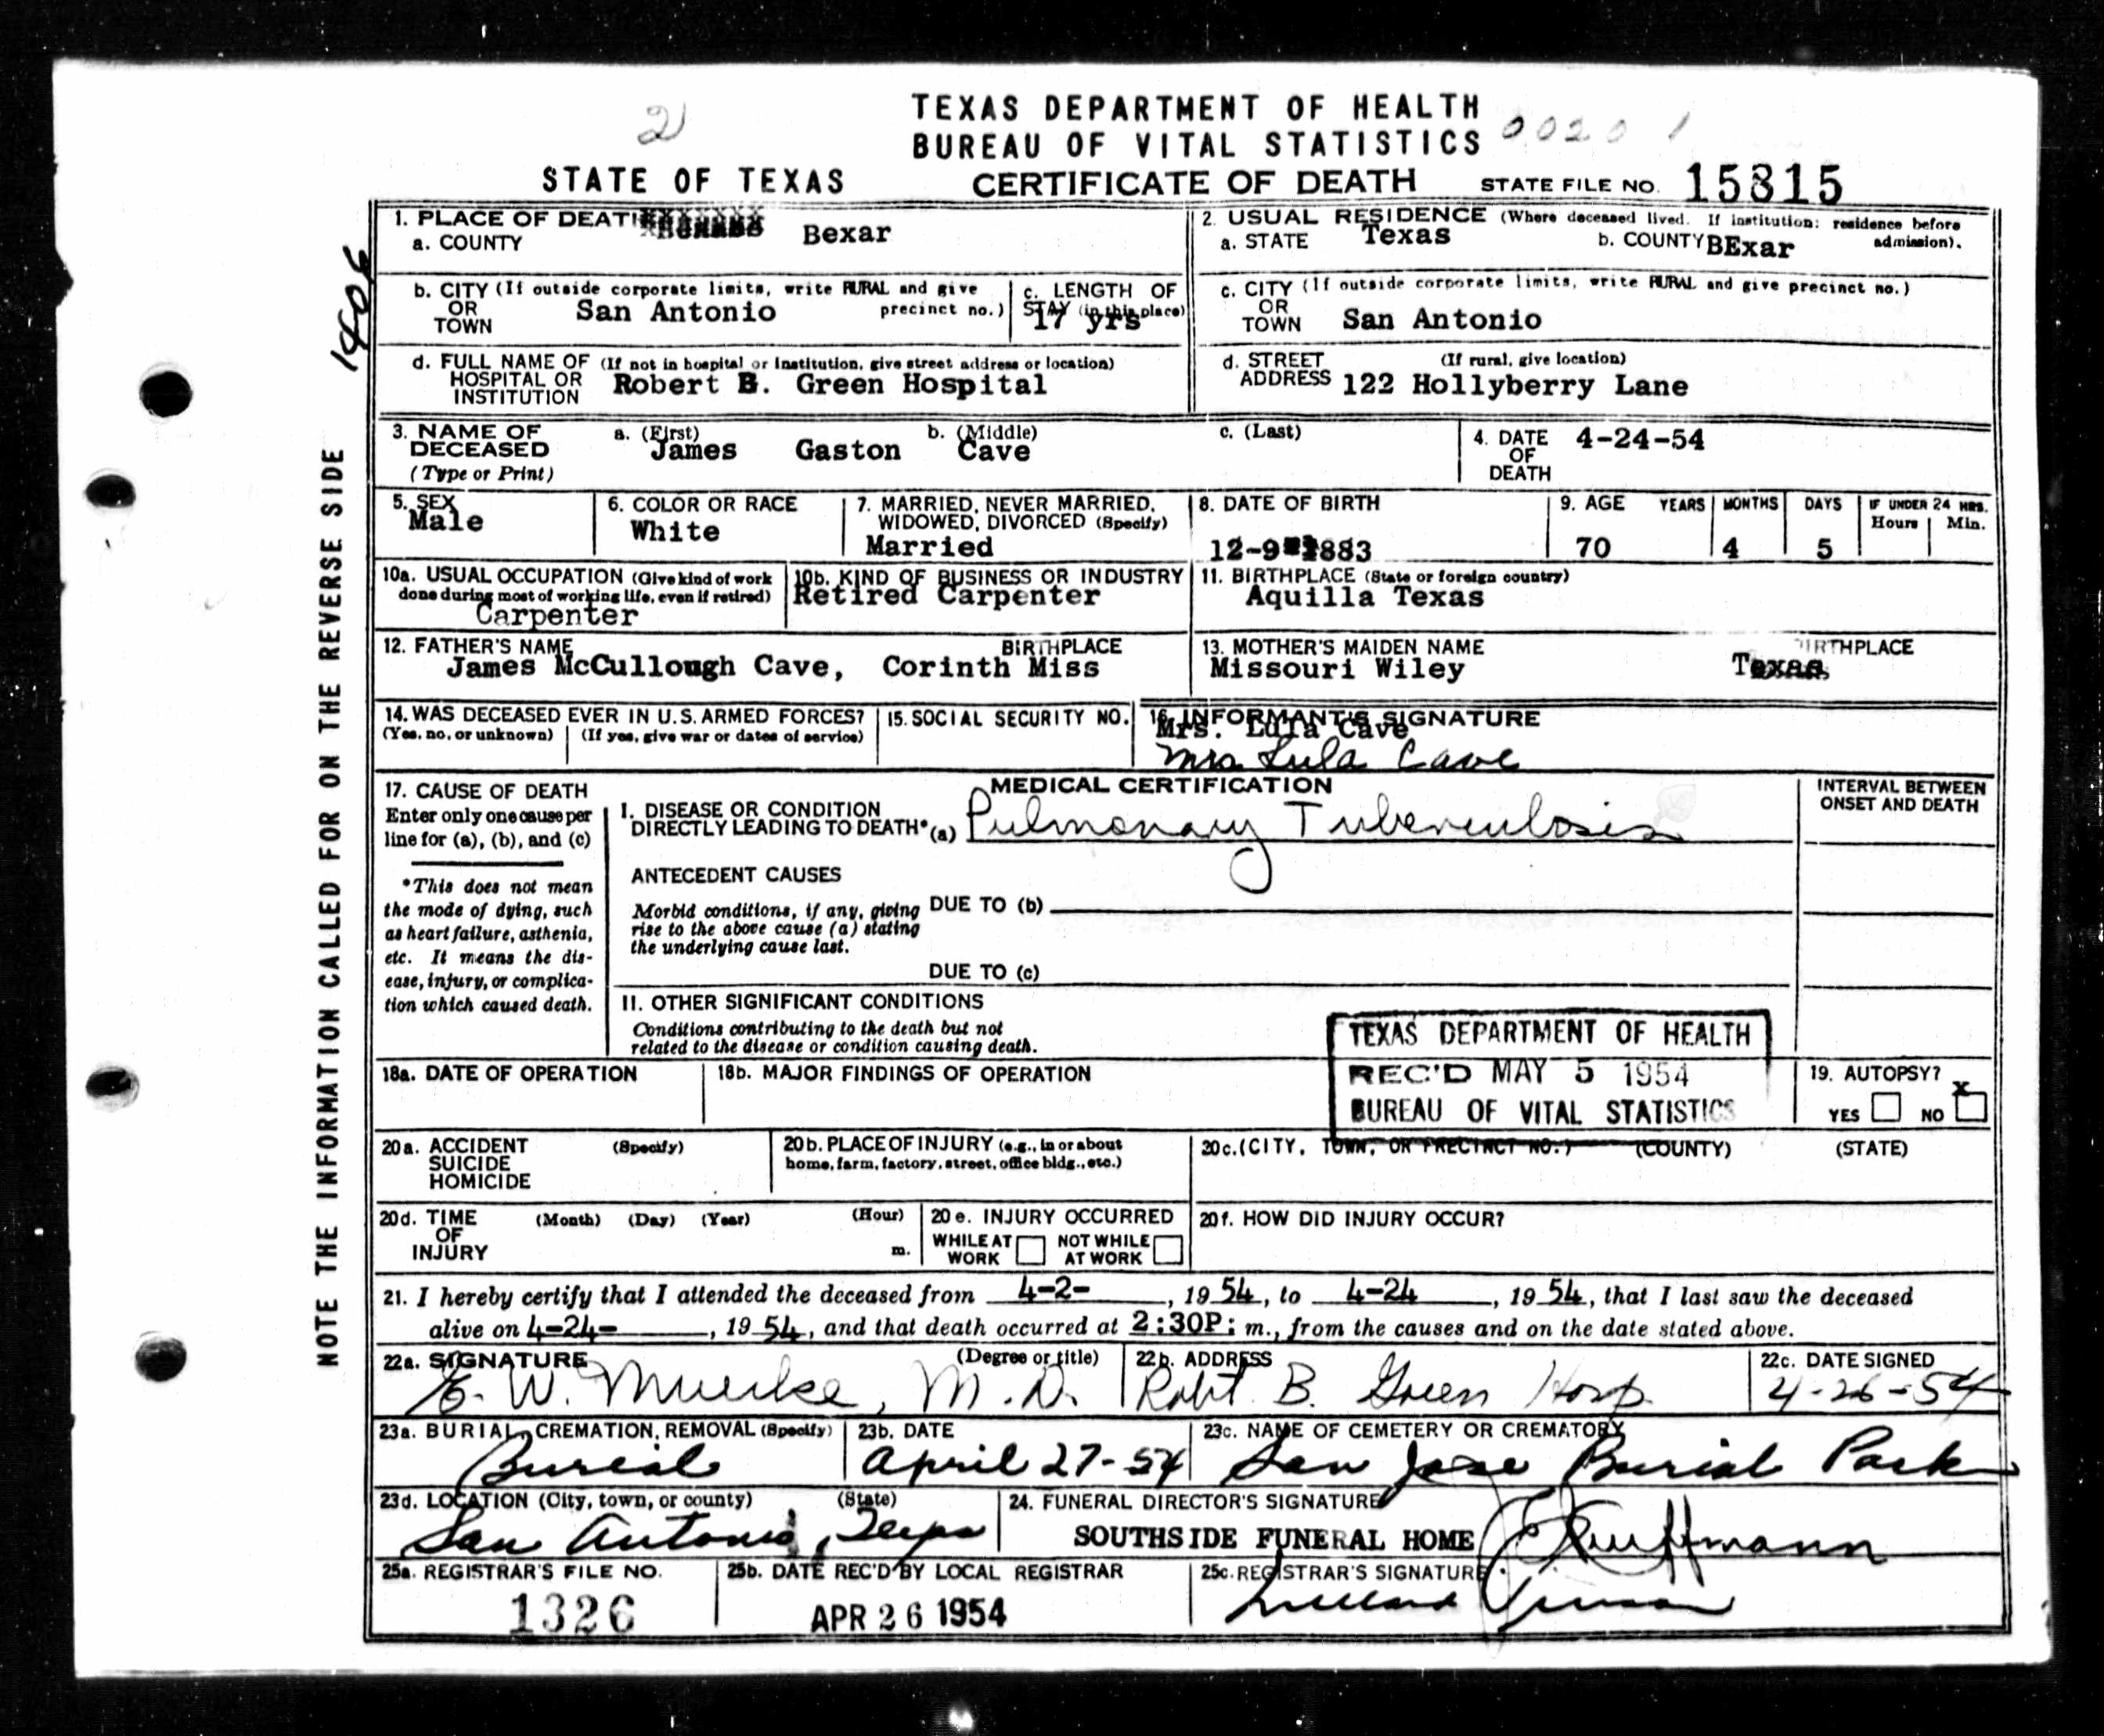 2
TEXAS DEPARTMENT OF HEALTH
BUREAU OF VITAL STATISTICS 0020 1
STATE OF TEXAS CERTIFICATE OF DEATH STATE FILE NO. 15815
NOTE THE INFORMATION CALLED FOR ON THE REVERSE SIDE
1. PLACE OF DEATH
a. COUNTY Bexar
2. USUAL RESIDENCE (Where deceased lived. If institution: residence before admission).
a. STATE Texas b. COUNTY BExar
b. CITY (If outside corporate limits, write RURAL and give precinct no.)
OR TOWN San Antonio
c. LENGTH OF STAY (in this place) 17 yrs
c. CITY (If outside corporate limits, write RURAL and give precinct no.)
OR TOWN San Antonio
d. FULL NAME OF (If not in hospital or institution, give street address or location)
HOSPITAL OR INSTITUTION Robert B. Green Hospital
d. STREET ADDRESS (If rural, give location)
122 Hollyberry Lane
3. NAME OF DECEASED (Type or Print)
a. (First) b. (Middle) c. (Last)
James Gaston Cave
4. DATE OF DEATH 4-24-54
5. SEX Male
6. COLOR OR RACE White
7. MARRIED, NEVER MARRIED, WIDOWED, DIVORCED (Specify) Married
8. DATE OF BIRTH 12-9-1883
9. AGE YEARS MONTHS DAYS IF UNDER 24 HRS. Hours Min.
70 4 5
10a. USUAL OCCUPATION (Give kind of work done during most of working life, even if retired)
Carpenter
10b. KIND OF BUSINESS OR INDUSTRY
Retired Carpenter
11. BIRTHPLACE (State or foreign country)
Aquilla Texas
12. FATHER'S NAME BIRTHPLACE
James McCullough Cave, Corinth Miss
13. MOTHER'S MAIDEN NAME BIRTHPLACE
Missouri Wiley Texas
14. WAS DECEASED EVER IN U.S. ARMED FORCES?
(Yes, no, or unknown) (If yes, give war or dates of service)
15. SOCIAL SECURITY NO.
16. INFORMANT'S SIGNATURE
Mrs. Lula Cave
Mrs Lula Cave
MEDICAL CERTIFICATION
INTERVAL BETWEEN ONSET AND DEATH
17. CAUSE OF DEATH
Enter only one cause per line for (a), (b), and (c)
*This does not mean the mode of dying, such as heart failure, asthenia, etc. It means the disease, injury, or complication which caused death.
I. DISEASE OR CONDITION
DIRECTLY LEADING TO DEATH* (a) Pulmonary Tuberculosis
ANTECEDENT CAUSES
Morbid conditions, if any, giving rise to the above cause (a) stating the underlying cause last.
DUE TO (b)
DUE TO (c)
II. OTHER SIGNIFICANT CONDITIONS
Conditions contributing to the death but not related to the disease or condition causing death.
TEXAS DEPARTMENT OF HEALTH
REC'D MAY 5 1954
BUREAU OF VITAL STATISTICS
18a. DATE OF OPERATION
18b. MAJOR FINDINGS OF OPERATION
19. AUTOPSY?
YES NO x
20a. ACCIDENT SUICIDE HOMICIDE (Specify)
20b. PLACE OF INJURY (e.g., in or about home, farm, factory, street, office bldg., etc.)
20c. (CITY, TOWN, OR PRECINCT NO.) (COUNTY) (STATE)
20d. TIME OF INJURY (Month) (Day) (Year) (Hour) m.
20e. INJURY OCCURRED
WHILE AT WORK NOT WHILE AT WORK
20f. HOW DID INJURY OCCUR?
21. I hereby certify that I attended the deceased from 4-2-, 1954, to 4-24, 1954, that I last saw the deceased
alive on 4-24-, 1954, and that death occurred at 2:30P: m., from the causes and on the date stated above.
22a. SIGNATURE (Degree or title)
E. W. Muecke, M.D.
22b. ADDRESS
Robt B. Green Hosp
22c. DATE SIGNED
4-26-54
23a. BURIAL, CREMATION, REMOVAL (Specify)
Burial
23b. DATE
April 27-54
23c. NAME OF CEMETERY OR CREMATORY
San Jose Burial Park
23d. LOCATION (City, town, or county) (State)
San Antonio, Texas
24. FUNERAL DIRECTOR'S SIGNATURE
SOUTHSIDE FUNERAL HOME
25a. REGISTRAR'S FILE NO.
1326
25b. DATE REC'D BY LOCAL REGISTRAR
APR 26 1954
25c. REGISTRAR'S SIGNATURE